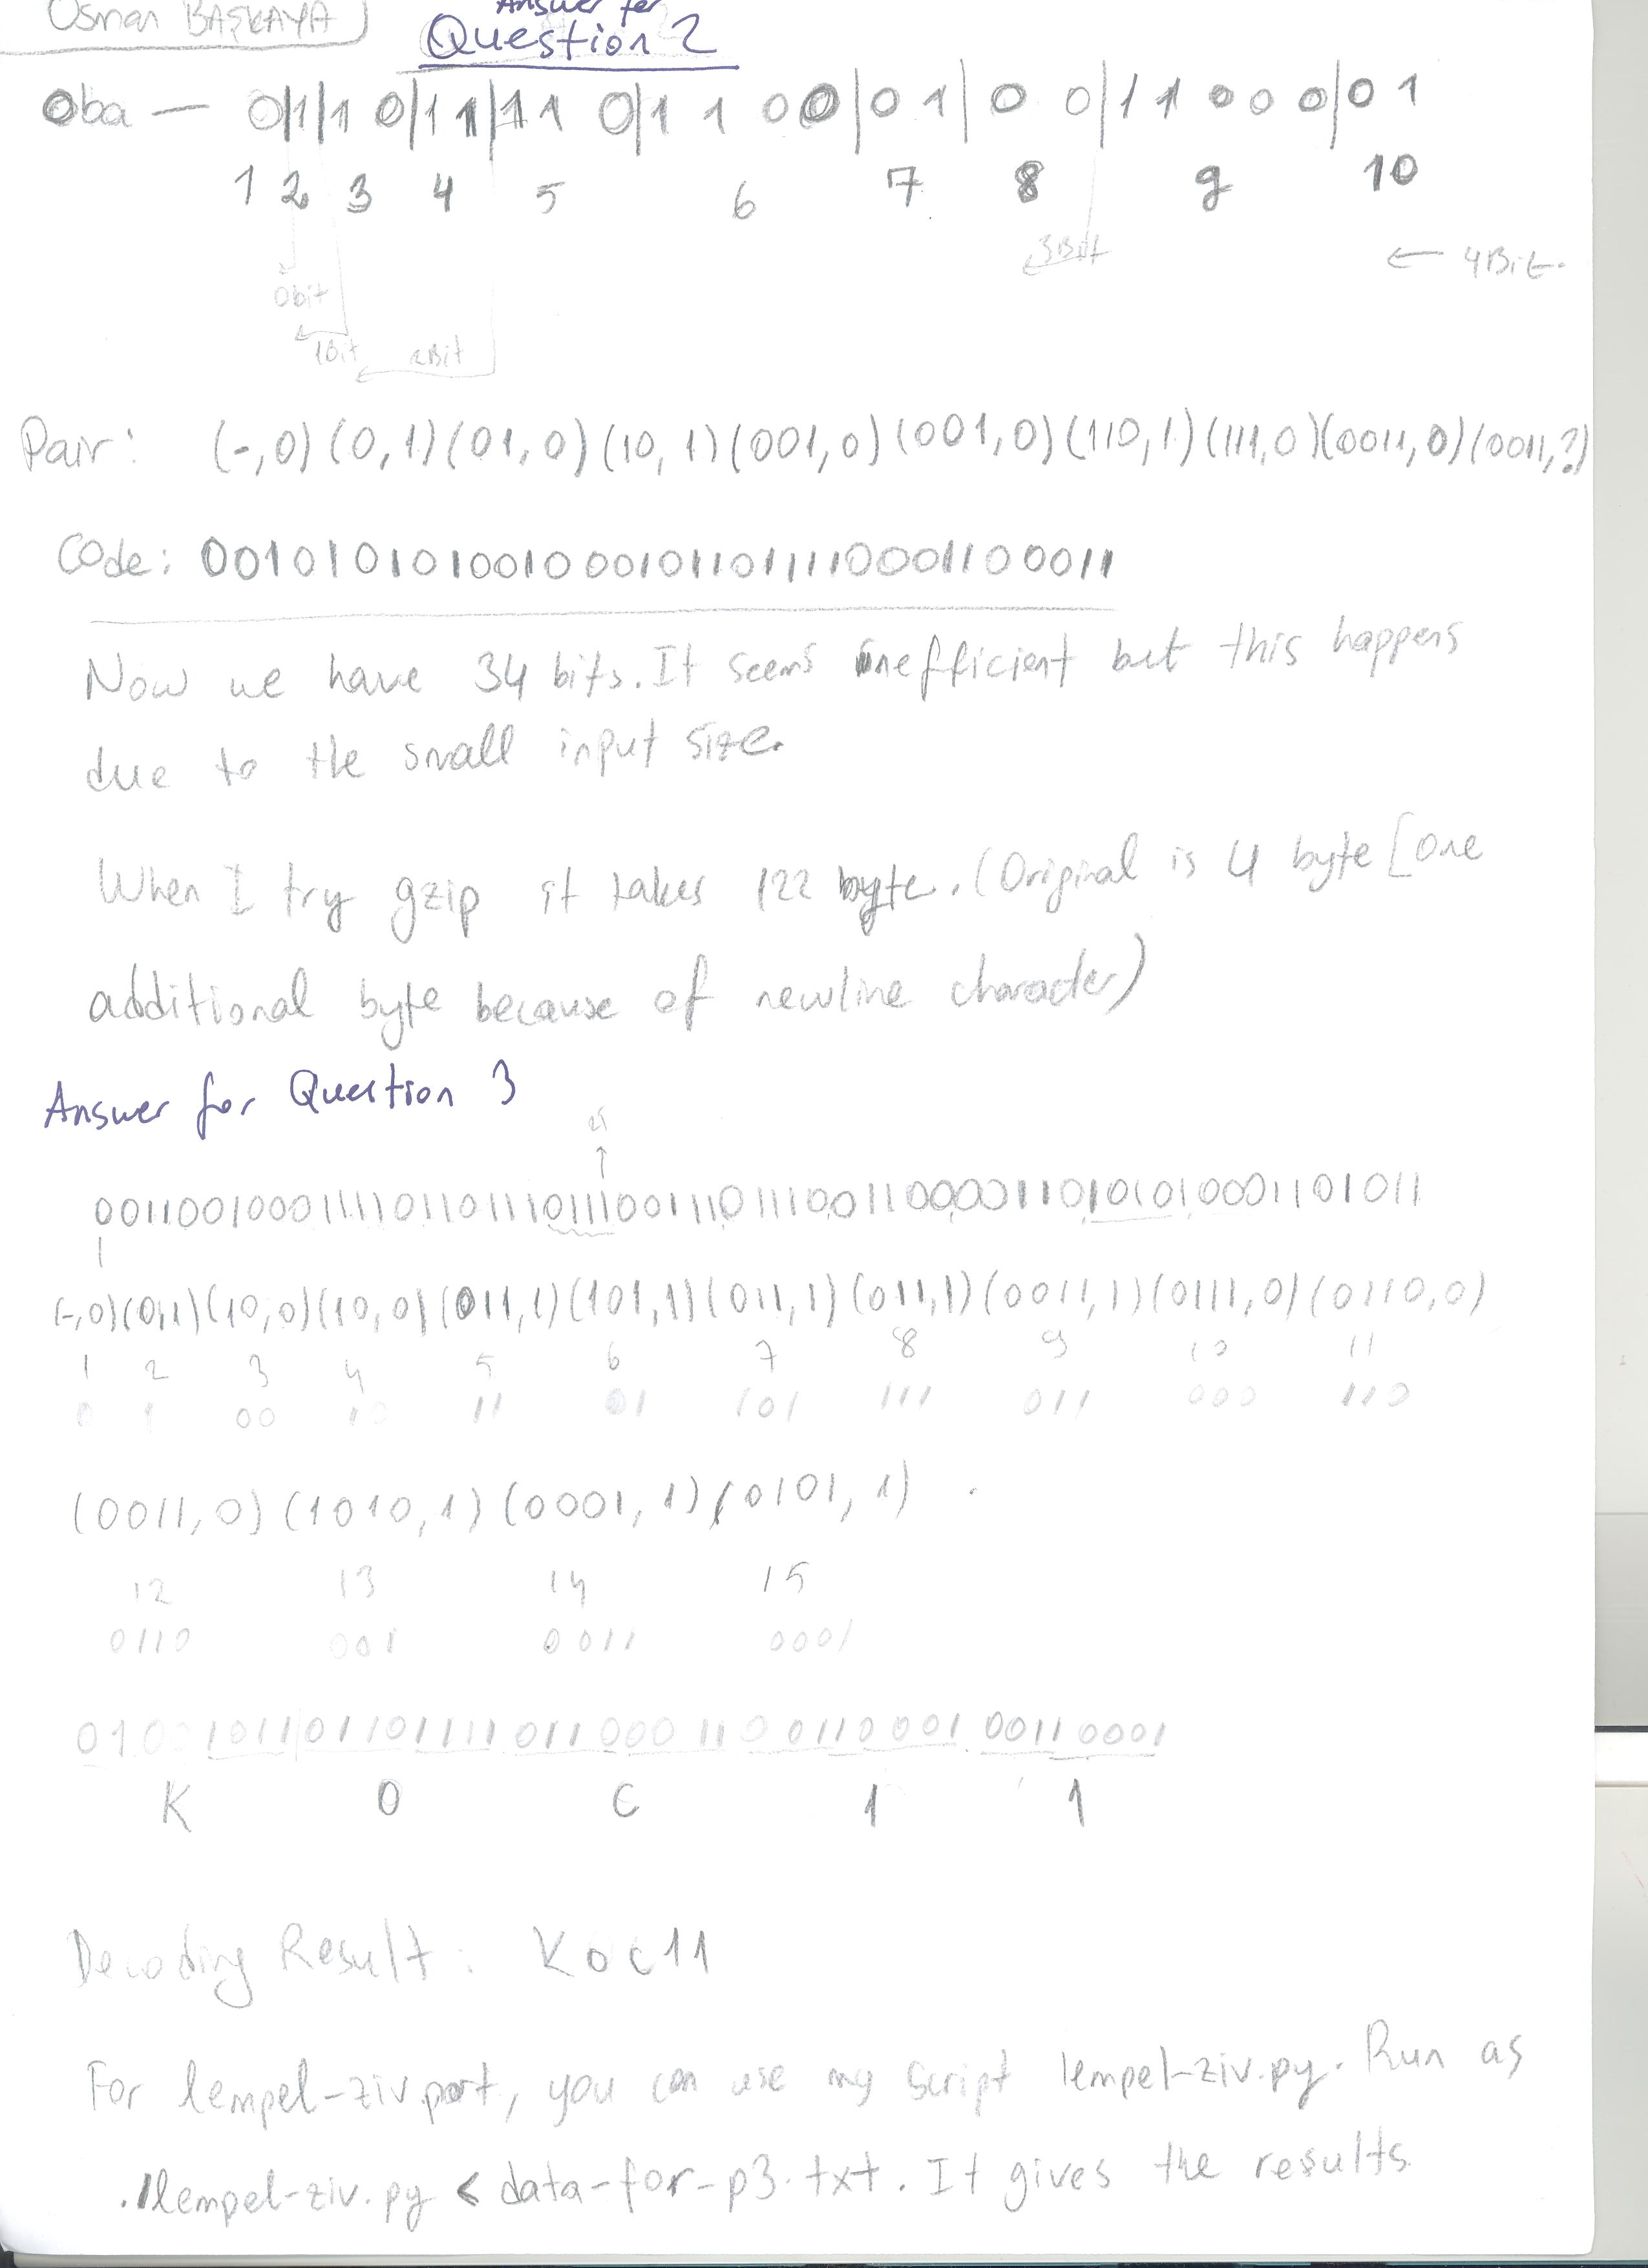 Osman BAŞKAYA
Answer for
Question 2
oba — 0|1|1 0|1 1|1 1 0|1 1 0 0|0 1|0 0|1 1 0 0 0|0 1
1 2 3 4 5 6 7 8 9 10
3Bit ← 4Bit.
0bit
1Bit 2Bit
Pair: (-,0) (0,1) (01,0) (10,1) (001,0) (001,0) (110,1) (111,0) (0011,0) (0011,?)
Code: 0010101010010001011011110001100011
Now we have 34 bits. It seems inefficient but this happens
due to the small input size.
When I try gzip it takes 122 byte. (Original is 4 byte [one
additional byte because of newline character)
Answer for Question 3
21
(-,0) (0,1) (10,0) (10,0) (011,1) (101,1) (011,1) (011,1) (0011,1) (0111,0) (0110,0)
1 2 3 4 5 6 7 8 9 10 11
0 1 00 10 11 01 101 111 011 000 110
(0011,0) (1010,1) (0001,1) (0101,1) .
12 13 14 15
0110 001 0011 0001
0100 1011 01101111 011 000 110 0110 001 0011 0001
K O C 1 1
Decoding Result: Koc11
For lempel-ziv part, you can use my script lempel-ziv.py. Run as
./lempel-ziv.py < data-for-p3.txt. It gives the results.